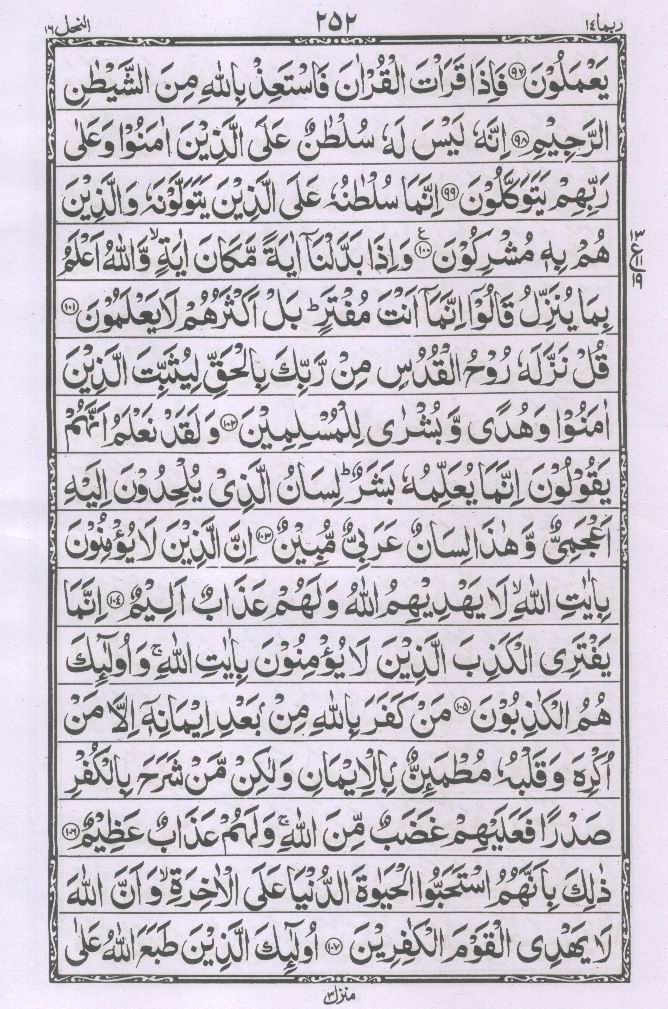 ربما ١٤
٢٥٢
النحل ١٦
يَعْمَلُوْنَ ۝٩٧ فَاِذَا قَرَاْتَ الْقُرْاٰنَ فَاسْتَعِذْ بِاللّٰهِ مِنَ الشَّيْطٰنِ
الرَّجِيْمِ ۝٩٨ اِنَّهٗ لَيْسَ لَهٗ سُلْطٰنٌ عَلَى الَّذِيْنَ اٰمَنُوْا وَعَلٰى
رَبِّهِمْ يَتَوَكَّلُوْنَ ۝٩٩ اِنَّمَا سُلْطٰنُهٗ عَلَى الَّذِيْنَ يَتَوَلَّوْنَهٗ وَالَّذِيْنَ
هُمْ بِهٖ مُشْرِكُوْنَ ۝١٠٠ ع وَاِذَا بَدَّلْنَاۤ اٰيَةً مَّكَانَ اٰيَةٍ ۙ وَّاللّٰهُ اَعْلَمُ
١٣
ع
١١
١٩
بِمَا يُنَزِّلُ قَالُوْۤا اِنَّمَاۤ اَنْتَ مُفْتَرٍ ؕ بَلْ اَكْثَرُهُمْ لَا يَعْلَمُوْنَ ۝١٠١
قُلْ نَزَّلَهٗ رُوْحُ الْقُدُسِ مِنْ رَّبِّكَ بِالْحَقِّ لِيُثَبِّتَ الَّذِيْنَ
اٰمَنُوْا وَهُدًى وَّبُشْرٰى لِلْمُسْلِمِيْنَ ۝١٠٢ وَلَقَدْ نَعْلَمُ اَنَّهُمْ
يَقُوْلُوْنَ اِنَّمَا يُعَلِّمُهٗ بَشَرٌ ؕ لِسَانُ الَّذِيْ يُلْحِدُوْنَ اِلَيْهِ
اَعْجَمِيٌّ وَّهٰذَا لِسَانٌ عَرَبِيٌّ مُّبِيْنٌ ۝١٠٣ اِنَّ الَّذِيْنَ لَا يُؤْمِنُوْنَ
بِاٰيٰتِ اللّٰهِ ۙ لَا يَهْدِيْهِمُ اللّٰهُ وَلَهُمْ عَذَابٌ اَلِيْمٌ ۝١٠٤ اِنَّمَا
يَفْتَرِى الْكَذِبَ الَّذِيْنَ لَا يُؤْمِنُوْنَ بِاٰيٰتِ اللّٰهِ ۚ وَاُولٰٓئِكَ
هُمُ الْكٰذِبُوْنَ ۝١٠٥ مَنْ كَفَرَ بِاللّٰهِ مِنْۢ بَعْدِ اِيْمَانِهٖۤ اِلَّا مَنْ
اُكْرِهَ وَقَلْبُهٗ مُطْمَئِنٌّۢ بِالْاِيْمَانِ وَلٰكِنْ مَّنْ شَرَحَ بِالْكُفْرِ
صَدْرًا فَعَلَيْهِمْ غَضَبٌ مِّنَ اللّٰهِ ۚ وَلَهُمْ عَذَابٌ عَظِيْمٌ ۝١٠٦
ذٰلِكَ بِاَنَّهُمُ اسْتَحَبُّوا الْحَيٰوةَ الدُّنْيَا عَلَى الْاٰخِرَةِ ۙ وَاَنَّ اللّٰهَ
لَا يَهْدِى الْقَوْمَ الْكٰفِرِيْنَ ۝١٠٧ اُولٰٓئِكَ الَّذِيْنَ طَبَعَ اللّٰهُ عَلٰى
منزل ٣